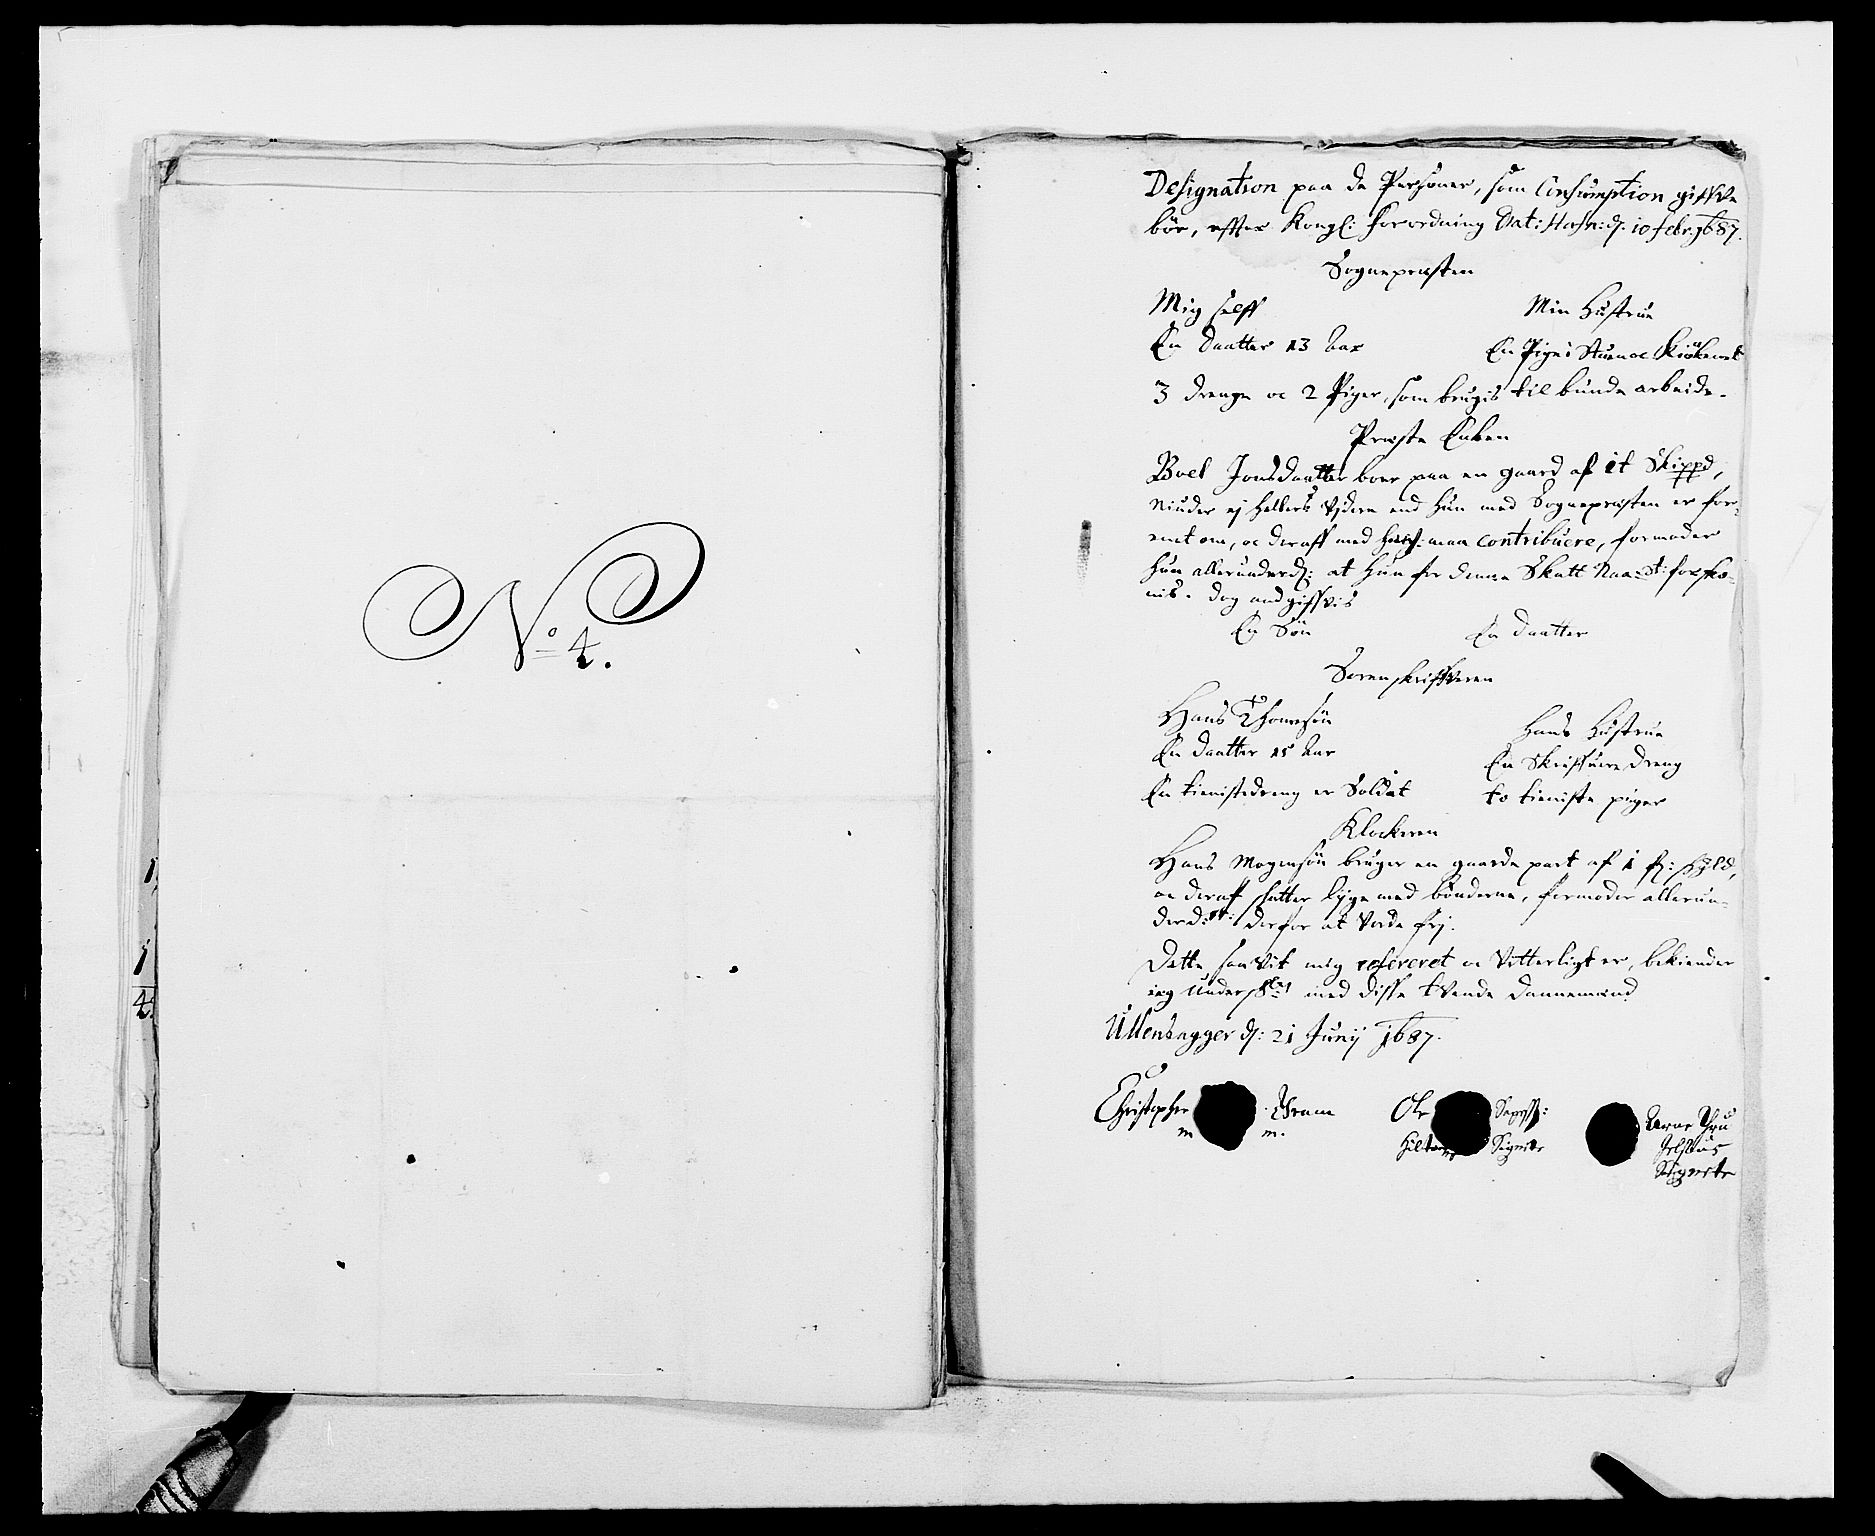 No 4.
1
1
4.
Designation paa de Personer, som Consumption giffve
bör, effter Kongl: forordning Dat: Hafn: d: 10 febr: 1687.
Sognepresten
Mig self
Min Hustrue
En Daatter 13 Aar
En Pige i Stuen oc
3 drenge oc 2 Piger, som brugis til bunde arbeide.
Preste Enken
Boel Jonsdaatter boer paa en gaard af it Skippd,
niuder ej hellers ydere end hun med Sognepresten er for-
eent om, oc deraff med maa contribuere, formoder
hun allerunderd: at hun for denne Skatt Naa-st: forsko-
nis. dog andgiffvis
En Sön
En Daatter
Sorenskriffveren
Hans Thomesön
Hans Hustrue
En Daatter 15 Aar
En Skriffvere dreng
En tienistedreng er Soldat
to tieniste piger
Klockeren
Hans Mogensön bruger en gaarde part af 1 fj: skyld,
oc deraf skatter lige med bönderne, formoder allerun-
derd: st: derfor at vorde frj.
Dette saa vit mig refereret oc vitterligt er, bekiender
ieg under med disse tvende dannemænd
Ullensagger d: 21 Junij 1687.
Christopher
m m.
Ole
Signete
Signete